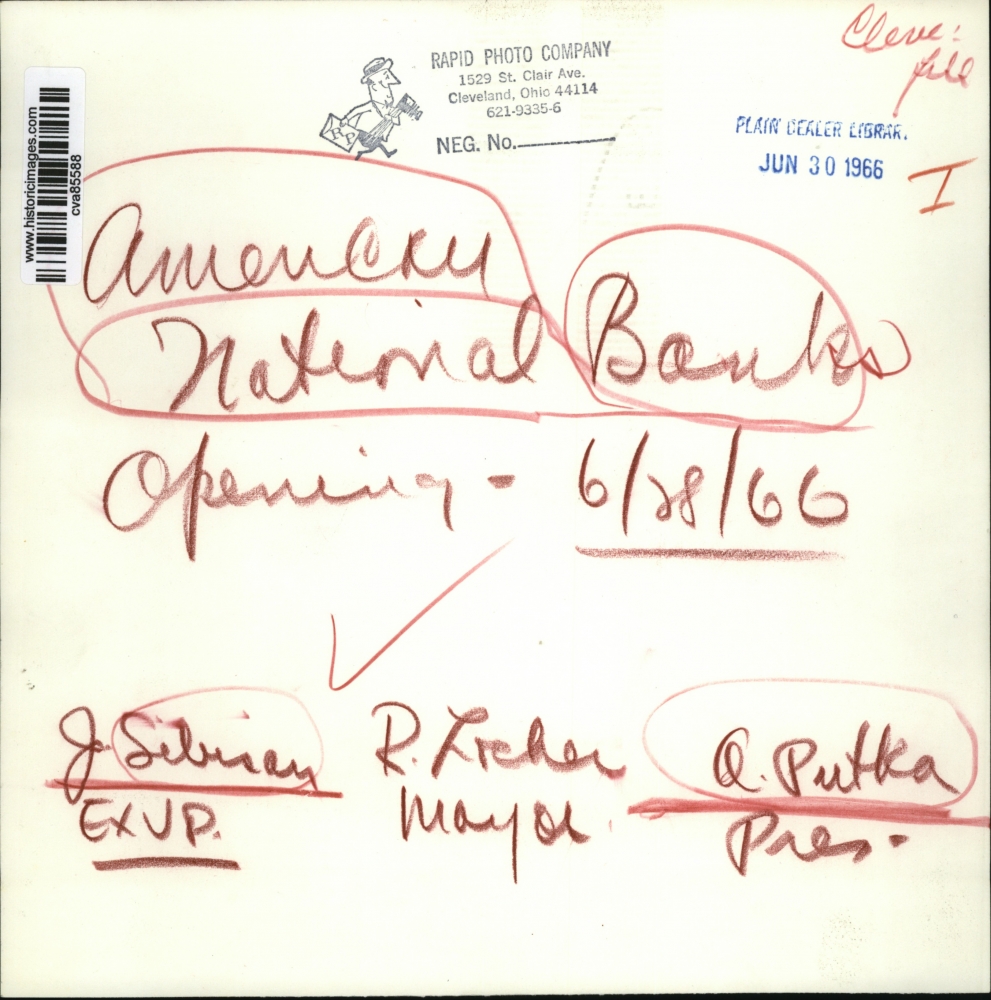 Cleve:
file
RAPID PHOTO COMPANY
1529 St. Clair Ave.
Cleveland, Ohio 44114
621-9335-6
NEG. No.
RAP
PLAIN DEALER LIBRAR.
JUN 30 1966
I
www.historicimages.com
cva85588
American
National Banks
Opening - 6/28/66
J. Sibisan R. Locher A. Putka
EXVP. Mayor. Pres.